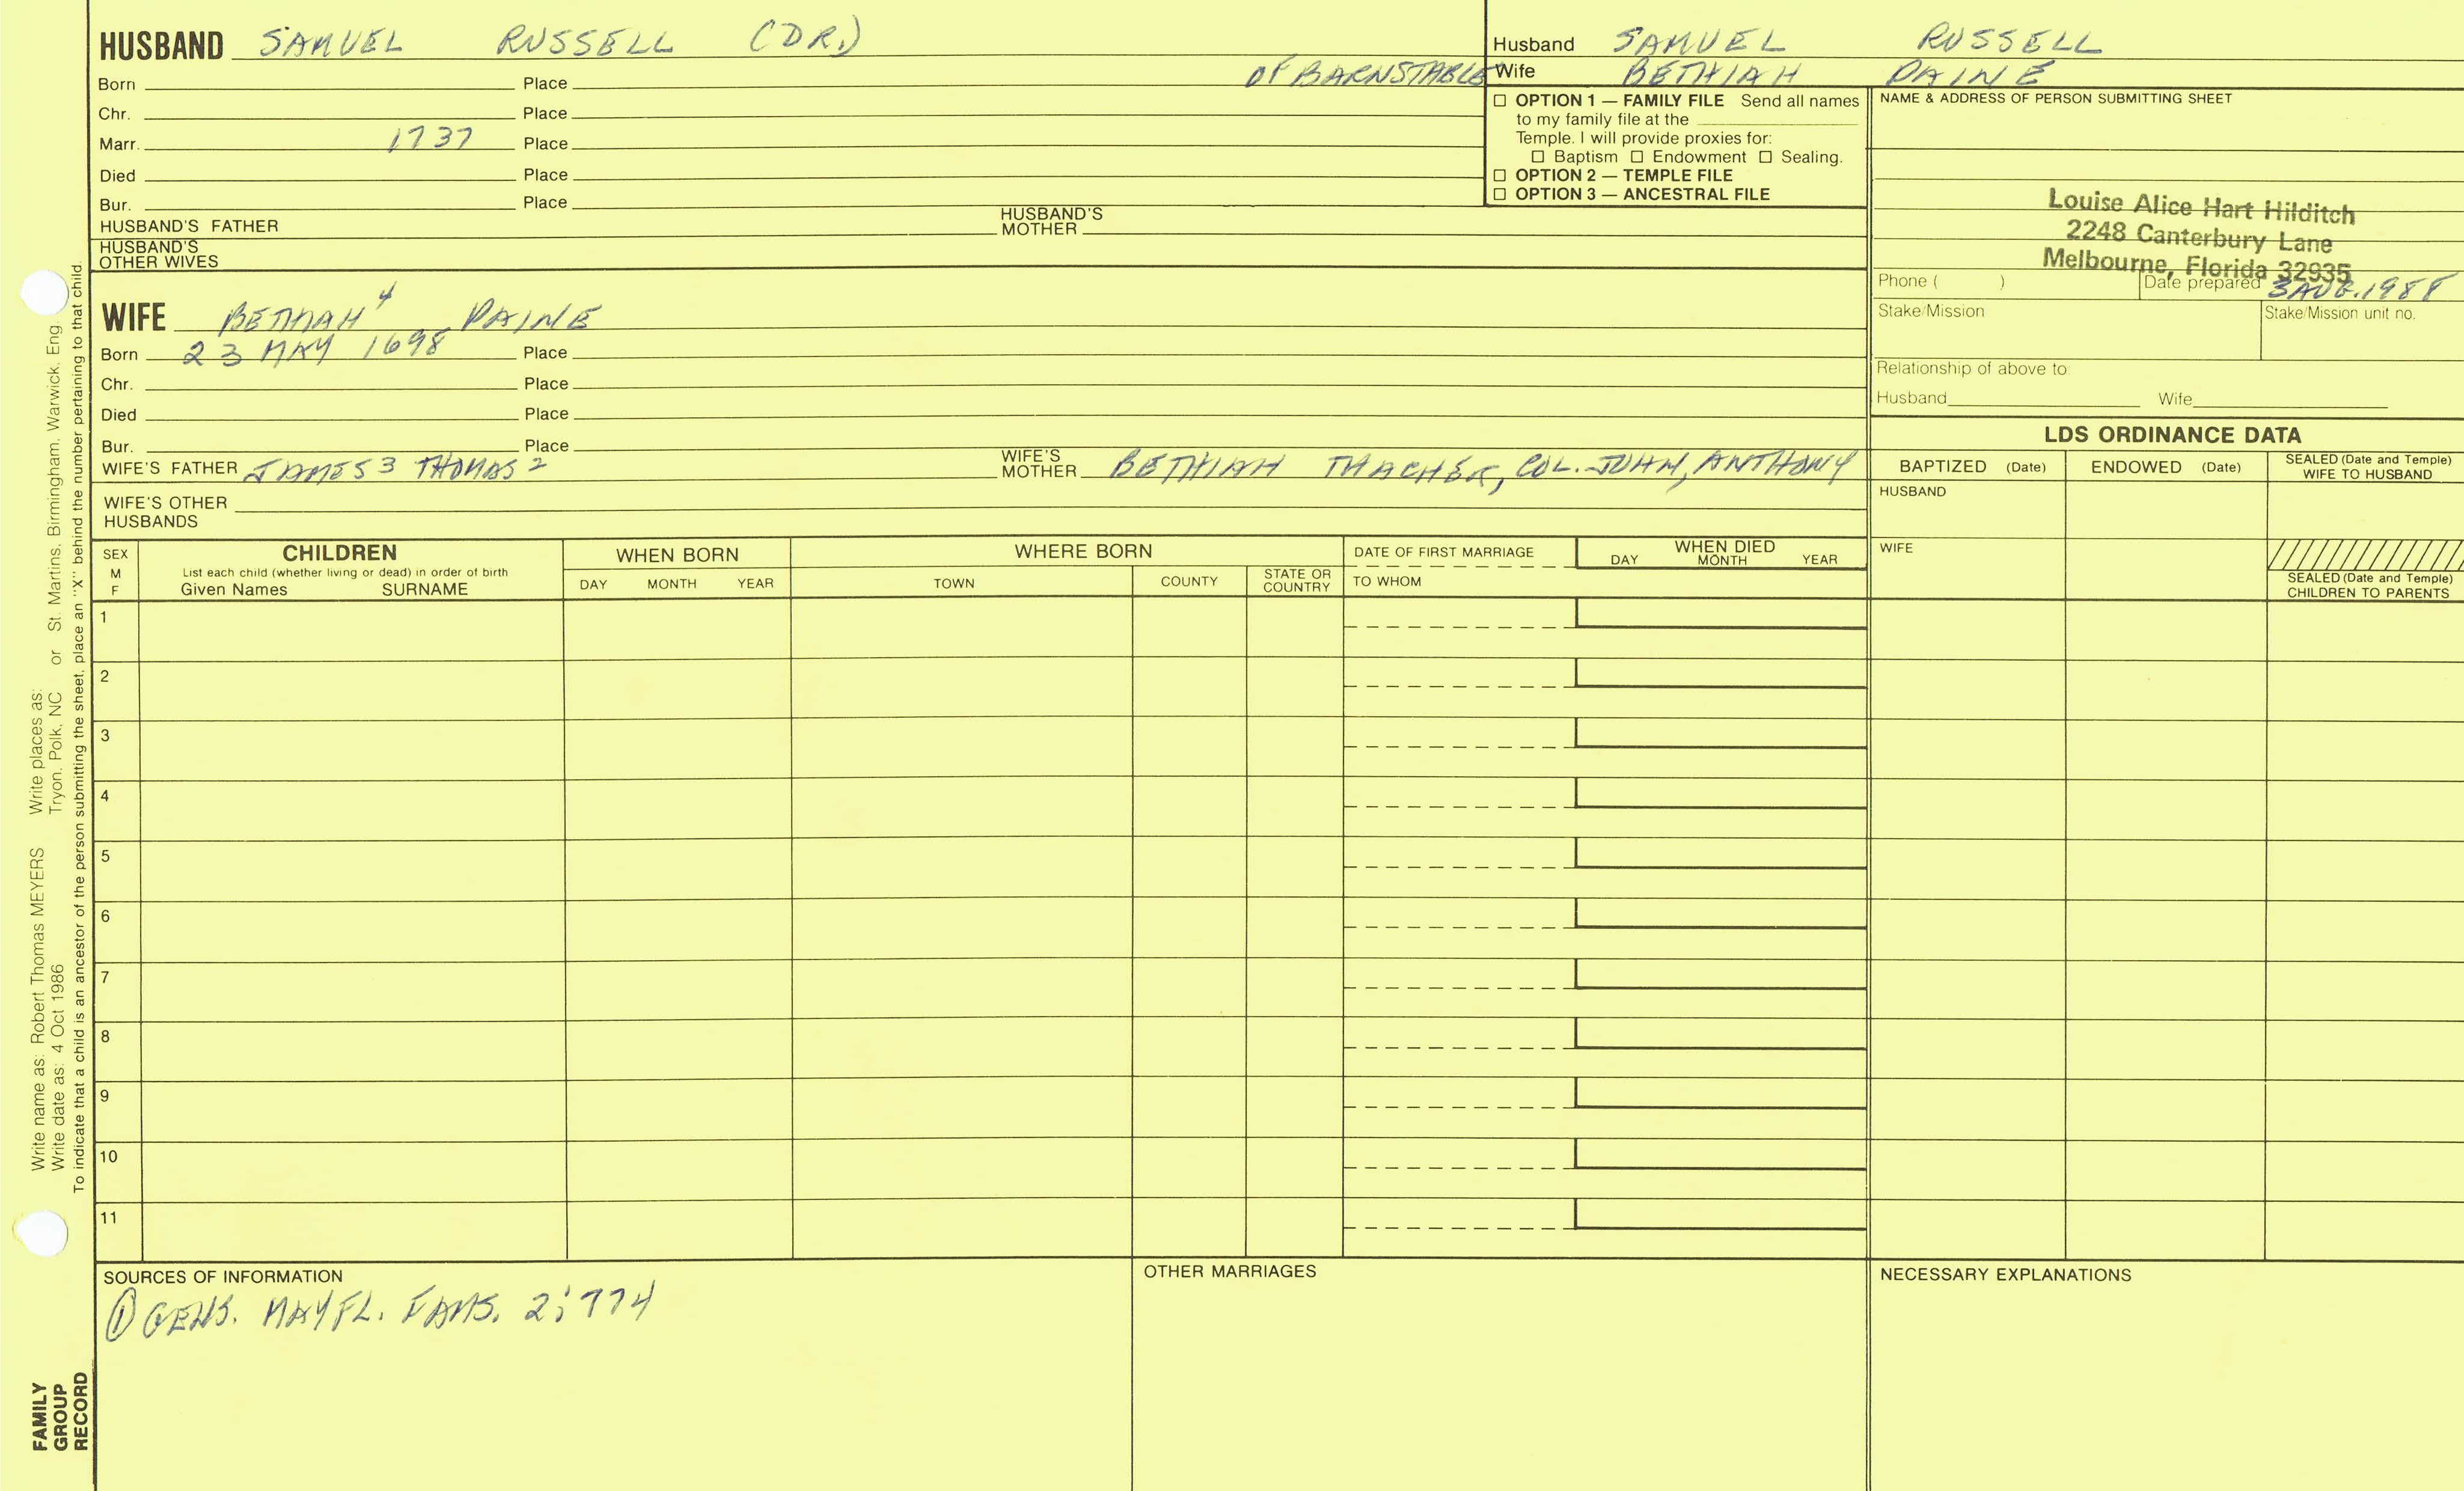 HUSBAND SAMUEL RUSSELL (DR.)
OF BARNSTABLE
Born Place
Chr. Place
Marr. 1737 Place
Died Place
Bur. Place
HUSBAND'S FATHER HUSBAND'S MOTHER
HUSBAND'S OTHER WIVES
WIFE BETHIAH 4 PAINE
Born 23 MAY 1698 Place
Chr. Place
Died Place
Bur. Place
WIFE'S FATHER JAMES 3 THOMAS 2 WIFE'S MOTHER BETHIAH THACHER, COL. JOHN, ANTHONY
WIFE'S OTHER HUSBANDS
Husband SAMUEL RUSSELL
Wife BETHIAH PAINE
☐ OPTION 1 — FAMILY FILE Send all names
to my family file at the
Temple. I will provide proxies for:
☐ Baptism ☐ Endowment ☐ Sealing.
☐ OPTION 2 — TEMPLE FILE
☐ OPTION 3 — ANCESTRAL FILE
NAME & ADDRESS OF PERSON SUBMITTING SHEET
Louise Alice Hart Hilditch
2248 Canterbury Lane
Melbourne, Florida 32935
Phone ( ) Date prepared 3 AUG. 1988
Stake/Mission Stake/Mission unit no.
Relationship of above to:
Husband Wife
LDS ORDINANCE DATA
BAPTIZED (Date) ENDOWED (Date) SEALED (Date and Temple) WIFE TO HUSBAND
HUSBAND
WIFE
SEALED (Date and Temple) CHILDREN TO PARENTS
SEX M F
CHILDREN
List each child (whether living or dead) in order of birth
Given Names SURNAME
WHEN BORN
DAY MONTH YEAR
WHERE BORN
TOWN COUNTY STATE OR COUNTRY
DATE OF FIRST MARRIAGE
TO WHOM
WHEN DIED
DAY MONTH YEAR
1
2
3
4
5
6
7
8
9
10
11
SOURCES OF INFORMATION
① GENS. MAYFL. FAMS. 2; 774
OTHER MARRIAGES
NECESSARY EXPLANATIONS
Write name as: Robert Thomas MEYERS Write places as: St. Martins, Birmingham, Warwick, Eng.
Write date as: 4 Oct 1986 Tryon, Polk, NC or
To indicate that a child is an ancestor of the person submitting the sheet, place an "X" behind the number pertaining to that child.
FAMILY
GROUP
RECORD